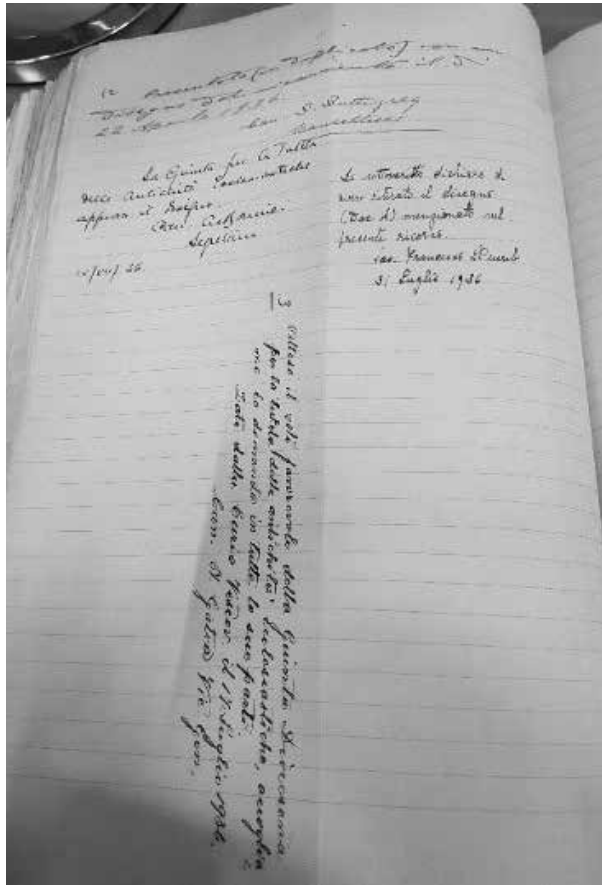 presentato (in duplicato) con un
disegno del monumento il dì
22 Aprile 1936.
Can. S.
Cancelliere
La Giunta per la Tutela
delle Antichità Ecclesiastiche
approva il
Segretario
Io sottoscritto dichiaro di
aver ritirato il disegno
(Doc A) menzionato nel
presente ricorso.
Can. Francesco
31 Luglio 1936
Atteso il voto favorevole della Giunta Diocesana
per la tutela delle antichità Ecclesiastiche, accoglia
mo la domanda in tutte le sue parti.
Data dalla Curia Vescov. il 17 Luglio 1936.
Can. Vic. Gen.